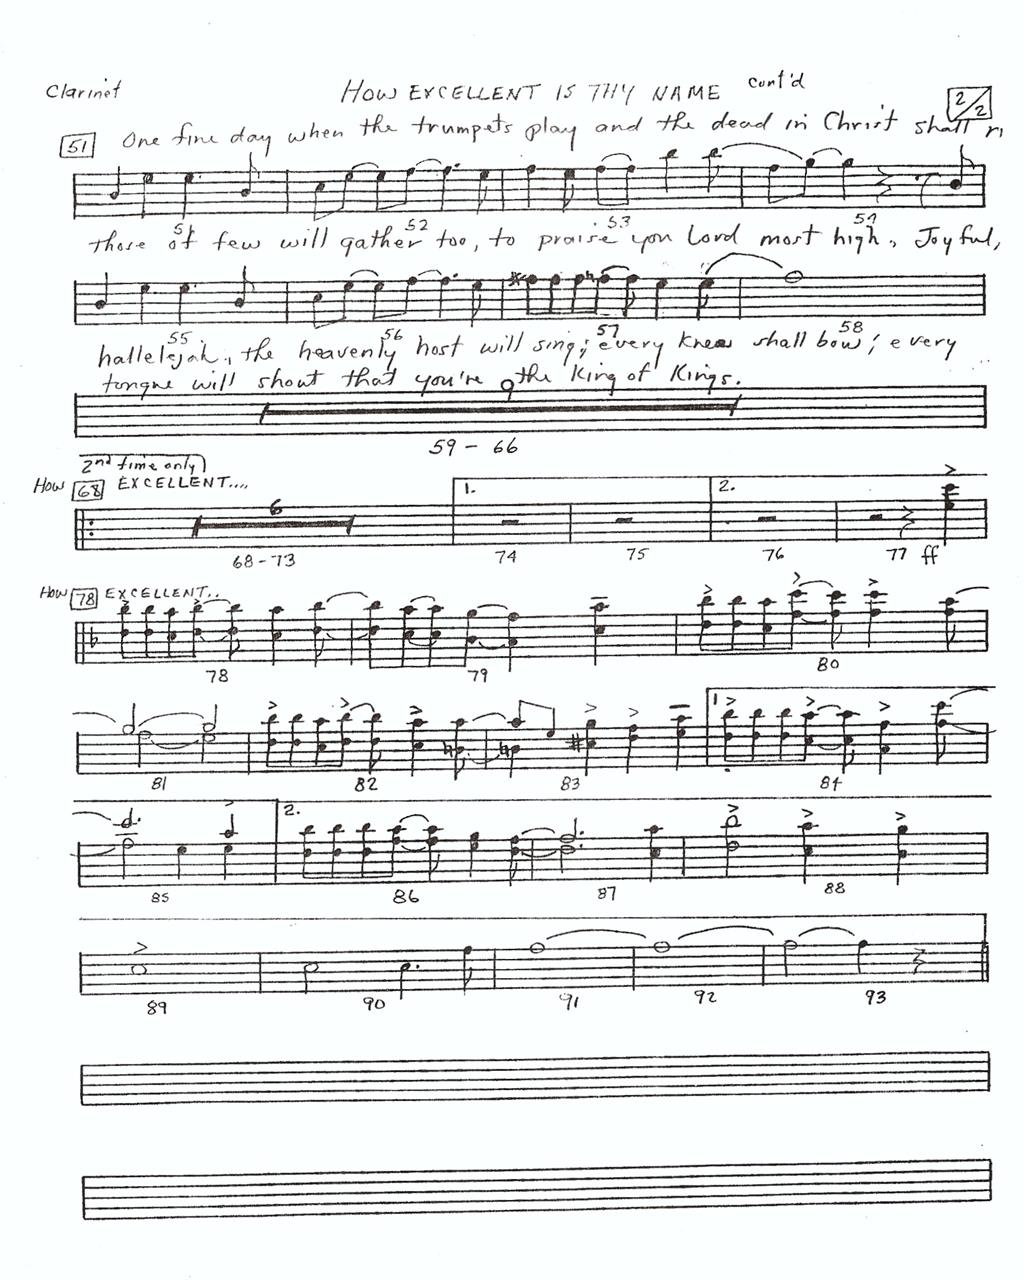 Clarinet HOW EXCELLENT IS THY NAME cont'd 2/2
51 One fine day when the trumpets play and the dead in Christ shall ri
51 52 53 54
those of few will gather too, to praise you Lord most high, Joyful,
55 56 57 58
hallelejah, the heavenly host will sing; every knee shall bow; every
tongue will shout that you're the King of Kings.
59 - 66
2nd time only
How 68 EXCELLENT....
6 1. 2.
68-73 74 75 76 77 ff
How 78 EXCELLENT..
78 79 80
1
81 82 83 84
2.
85 86 87 88
89 90 91 92 93